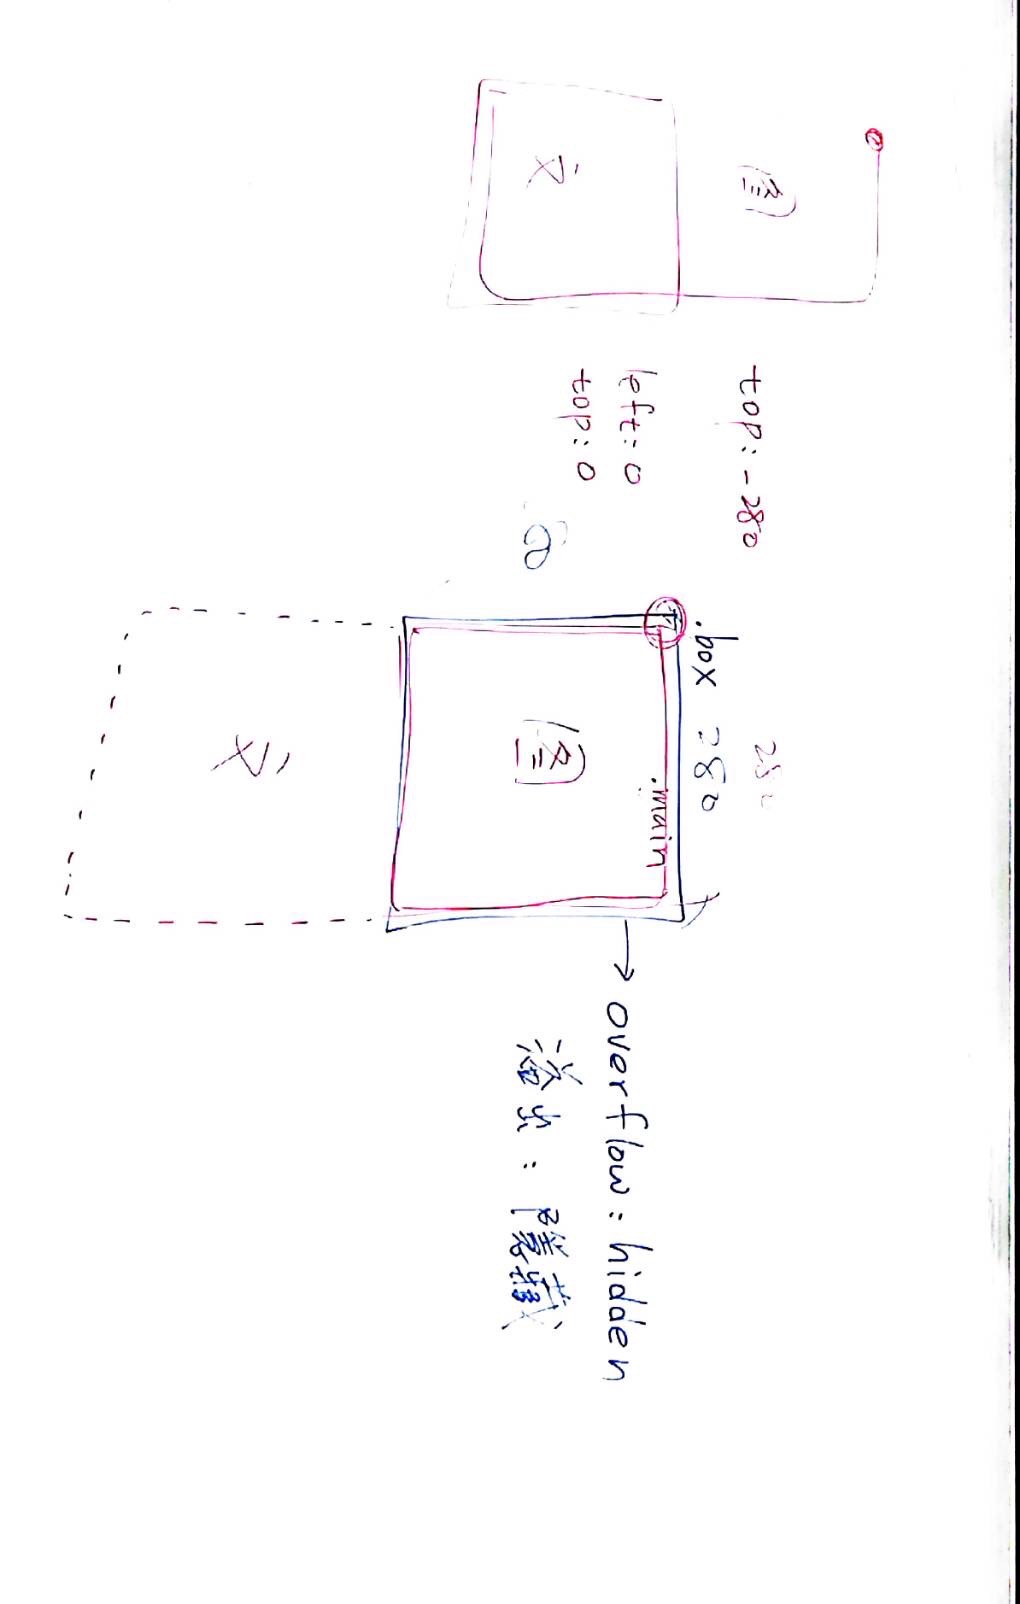 图
文
top:-280
left:0
top:0
280
.box 280
.main
图
文
overflow:hidden
溢出:隱藏